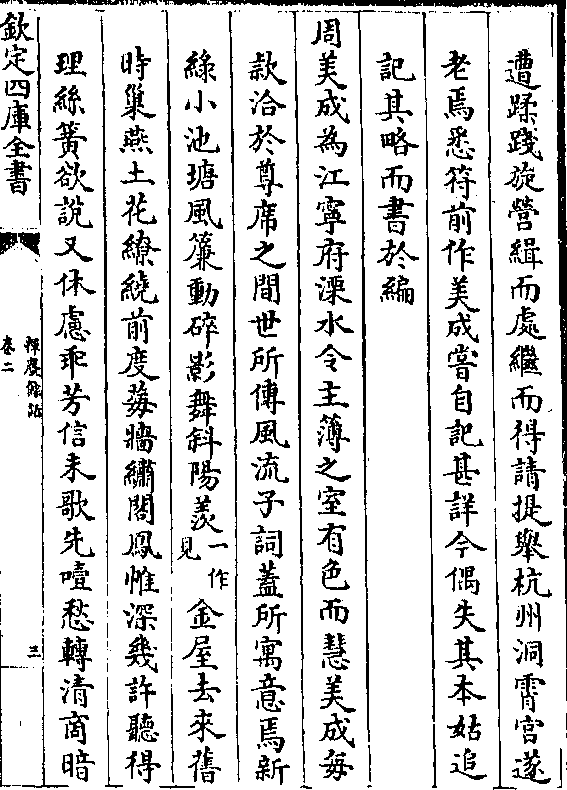 遭蹂踐旋營緝而處繼而得請提舉杭州洞霄宮遂
老焉悉符前作美成嘗自記甚詳今偶失其本姑追
記其略而書於編
周美成為江寧府溧水令主簿之室有色而慧美成每
款洽於尊席之間世所傳風流子詞蓋所寓意焉新
綠小池塘風簾動碎影舞斜陽羨一作見金屋去來舊
時巢燕土花繚繞前度莓牆繡閣鳳帷深幾許聽得
理絲簧欲說又休慮乖芳信未歌先噎愁轉清商暗
欽定四庫全書
揮麈餘話
卷二
三